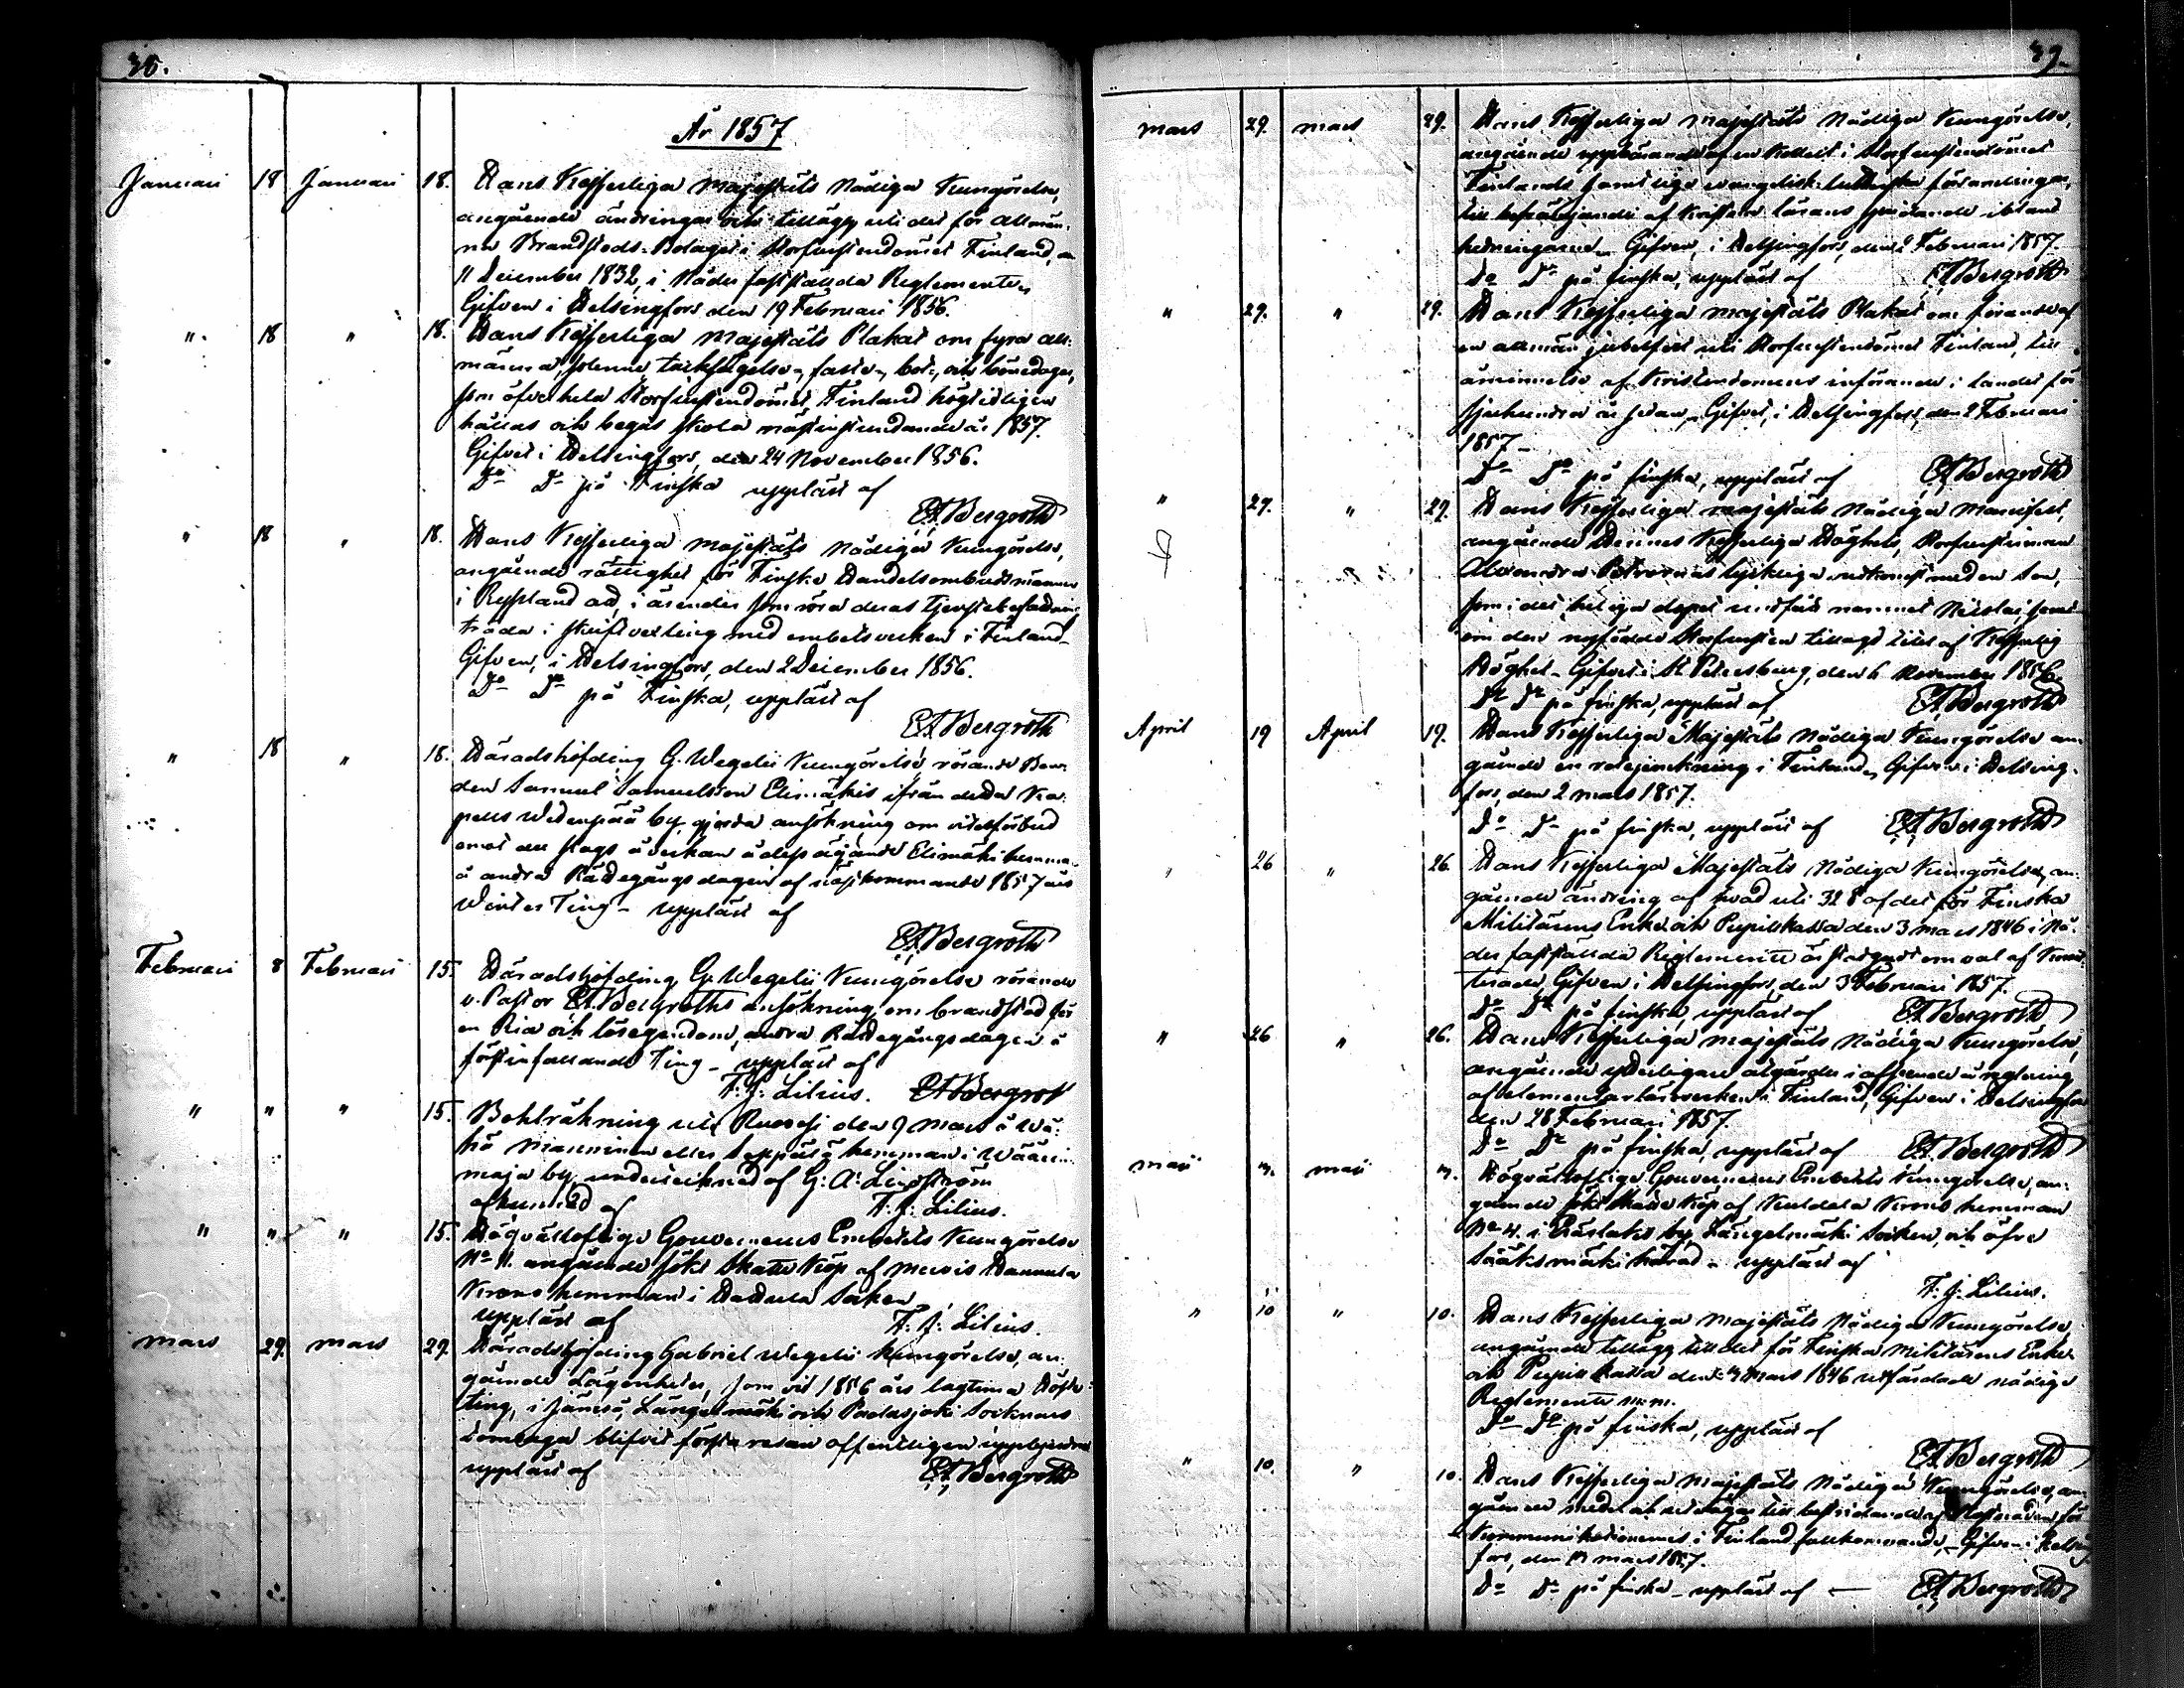 38.
År 1857
Januari 18 Januari 18. Hans Kejserliga Majestäts Nådiga Kungörelse,
angående ändringar och tillägg uti det för Allmän-
na Brandstods-Bolaget i Storfurstendömet Finland, den
11 December 1832, i Nåder fastställda Reglemente,
Gifven i Helsingfors den 19 Februari 1856.
" 18 " 18. Hans Kejserliga Majestäts Plakat om fyra all-
männa, solenne tacksägelse-, faste-, bot-, och bönedagar,
som öfver hela Storfurstendömet Finland högtidligen
hållas och begås skola nästinstundande år 1857.
Gifvet i Helsingfors, den 24 November 1856.
Do Do på Finska uppläst af
EA Bergroth
" 18 " 18. Hans Kejserliga Majestäts Nådiga Kungörelse,
angående rättighet för Finska Handelsombudsmännen
i Ryssland att, i ärenden som röra deras tjenstebefattning
träda i skriftvexling med embetsverken i Finland
Gifven, i Helsingfors, den 2 December 1856.
Do Do på Finska, uppläst af
EA Bergroth
" 18 " 18. Häradshöfding G. Wegelii Kungörelse, rörande Bon-
den Samuel Samuelsson Elimäkis ifrån detta Ka-
pells Wedenpää by, gjorda ansökning om vitesförbud
emot all slags åverkan å dess ägande Elimäki hemman
å andra Rådegångs dagen af nästkommande 1857 års
Winter Ting - uppläst af
EA Bergroth
Februari 8 Februari 15. Häradshöfding G. Wegelii Kungörelse rörande
v. Pastor EA Bergroths ansökning om brandstod för
en Ria och lösegendom, andra Rådegångs dagen å
först infallande Ting - uppläst af
F. J. Lilius. EA Bergroth
" " " 15. Bohlräkning uti Ruovesi den 9 Mars å
Manninen eller Seppälä hemman i Wääri-
maja by, undertecknad af G. A. Lindström
afkunnad af F. J. Lilius.
" " " 15. Högvällofliga Gouverneurs Embetets Kungörelse
No 11. angående sökt Skatte Köp af Mervis Hannula
Krono hemman i Hattula Socken
uppläst af F. J. Lilius.
Mars 29. Mars 29. Häradshöfding Gabriel Wegelii Kungörelse, an-
gående Lägenheter, som vid 1856 års lagtima Höste-
ting, i Jämsä, Längelmäki och Padasjoki Socknars
Domsaga blifvit första resan offentligen uppbjudna
uppläst af EA Bergroth
39.
Mars 29. Mars 29. Hans Kejserliga Majestäts Nådiga Kungörelse,
angående uppbärandet af en Kollekt i Storfurstendömet
Finlands samtliga evangelisk-lutherska församlingar,
till befrämjande af Kristna lärans spridande ibland
hedningarne, Gifven, i Helsingfors, den 2 Februari 1857.
Do Do på finska, uppläst af EA Bergroth
" 29. " 29. Hans Kejserliga Majestäts Plakat om firandet af
en allmän jubelfest uti Storfurstendömet Finland, till
åminnelse af Kristendomens införande i landet för
sjuhundra år sedan, Gifvet, i Helsingfors, den 2 Februari
1857 -
Do Do på finska, uppläst af EA Bergroth
" 29. " 29. Hans Kejserliga Majestäts Nådiga Manifest,
angående Hennes Kejserliga Höghets, Storfurstinnan
Alexandra Petrovnas lyckliga nedkomst med en Son,
som i det heliga dopet undfått namnet Nicolai, samt
om den nyfödde Storfursten tillagd titel af Kejserlig
Höghet - Gifvet i St Petersburg, den 6 November 1856.
Do Do på finska, uppläst af EA Bergroth
April 19 April 19. Hans Kejserliga Majestäts Nådiga Kungörelse an-
gående en revejenckning i Finland, Gifven i Helsing-
fors, den 2 Mars 1857.
Do Do på finska, uppläst af EA Bergroth
" 26 " 26. Hans Kejserliga Majestäts Nådiga Kungörelse, an-
gående ändring af hvad uti 32 § af det för Finska
Militärens Enke och Pupillkassa den 3 Mars 1846 i Nå-
der fastställda Reglemente är stadgadt om val af
Gifven i Helsingfors, den 3 Februari 1857.
Do Do på finska, uppläst af EA Bergroth
" 26 " 26. Hans Kejserliga Majestäts Nådiga Kungörelse,
angående ytterligare åtgärder i afseende å reglering
af elementarläroverken i Finland, Gifven i Helsingfors
den 28 Februari 1857.
Do Do på finska, uppläst af EA Bergroth
Maii 3. Maii 3. Högvällofliga Gouverneurs Embetets Kungörelse, an-
gående sökt Skatte Köp af Krono hemman
No 4. i Eräslaks by, Längelmäki Socken, och öfre
Sääksmäki härad - uppläst af
F. J. Lilius.
" 10 " 10. Hans Kejserliga Majestäts Nådiga Kungörelse,
angående tillägg till det för Finska Militärens Enke
och Pupill Kassa den 3 Mars 1846 utfärdade nådiga
Reglemente m.m.
Do Do på finska, uppläst af
EA Bergroth
" 10. " 10. Hans Kejserliga Majestäts Nådiga Kungörelse, an-
gående medel att utdragas till bestridande af kostnaden för
Kommunikationernes i Finland fullkomnande, Gifven i Helsing-
fors, den 17 Mars 1857.
Do Do på finska - uppläst af - EA Bergroth